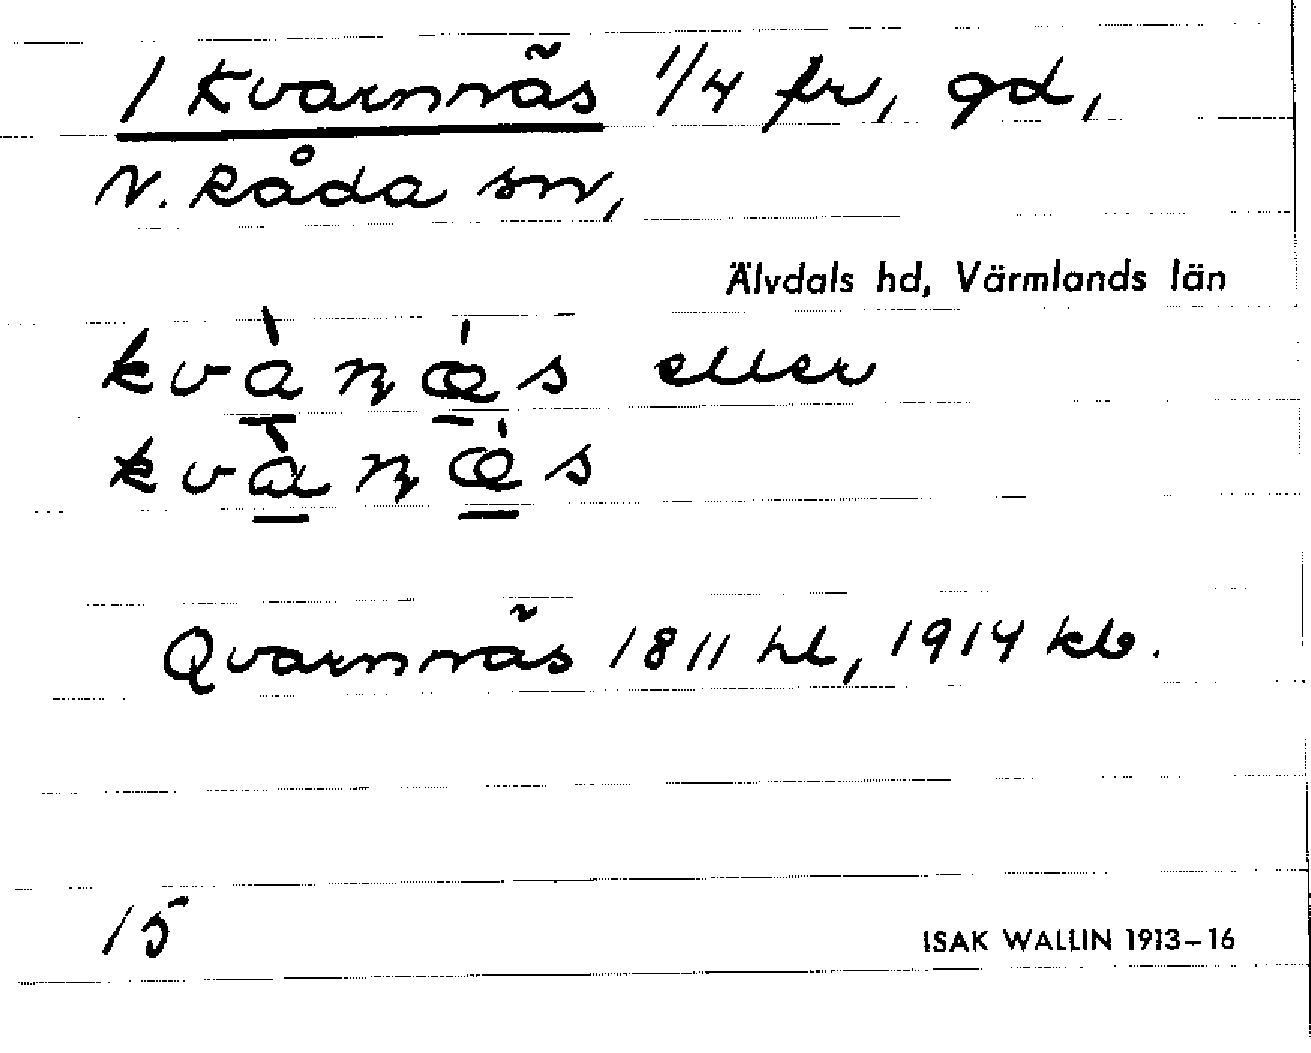 1 Kvarnnäs 1/4 fr, gd,
N. Råda sn,
Älvdals hd, Värmlands län
kvàn̥ǽs eller
kvàn̥ǽs
Qvarnnäs 1811 hl, 1914 kb.
15
ISAK WALLIN 1913–16